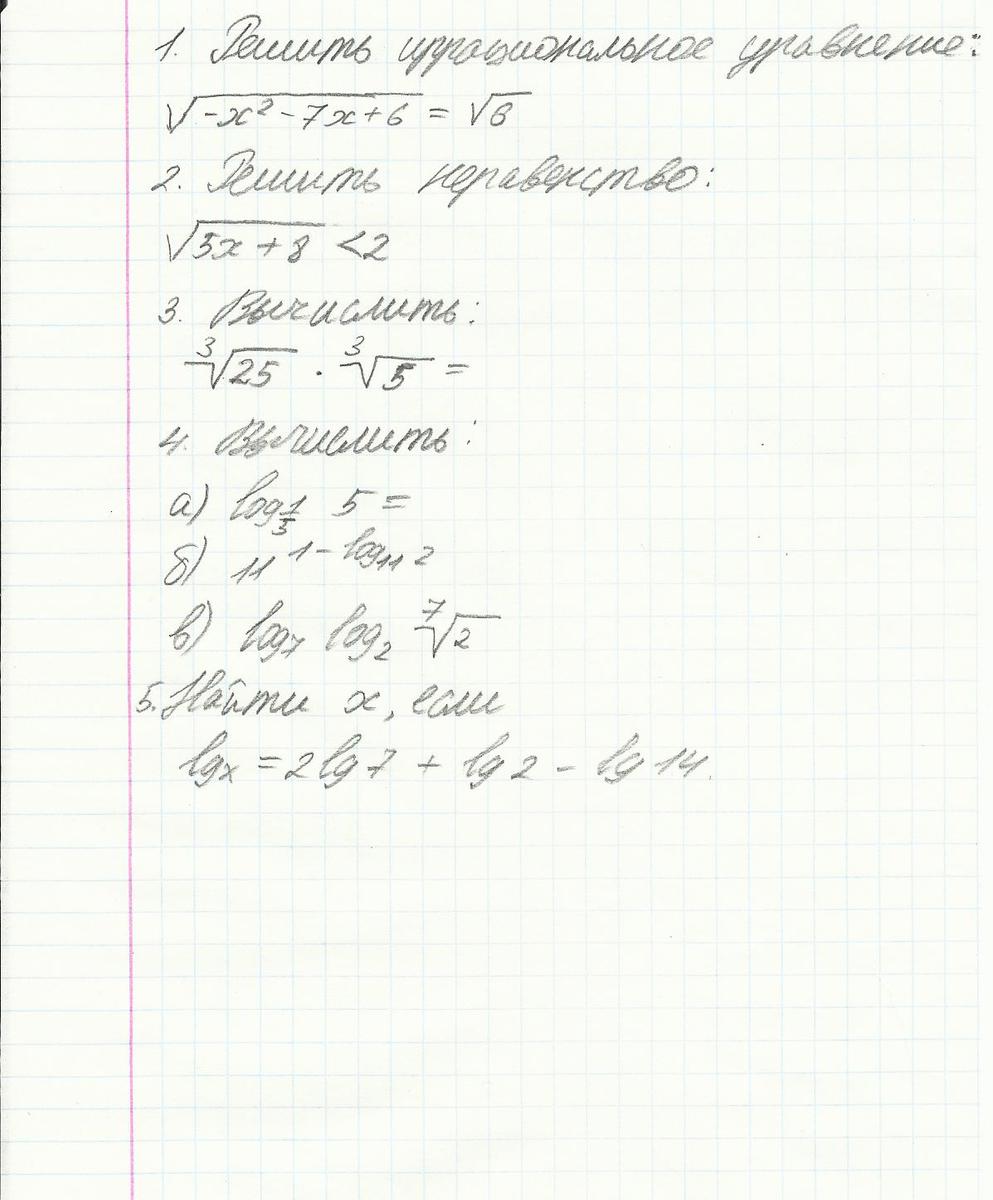 1. Решить иррациональное уравнение:
√(-x² - 7x + 6) = √6
2. Решить неравенство:
√(5x + 8) < 2
3. Вычислить:
∛25 · ∛5 =
4. Вычислить:
а) log_{1/5} 5 =
б) 11^{1 - log₁₁ 2}
в) log₇ log₂ ⁷√2
5. Найти x, если
lg x = 2 lg 7 + lg 2 - lg 14.